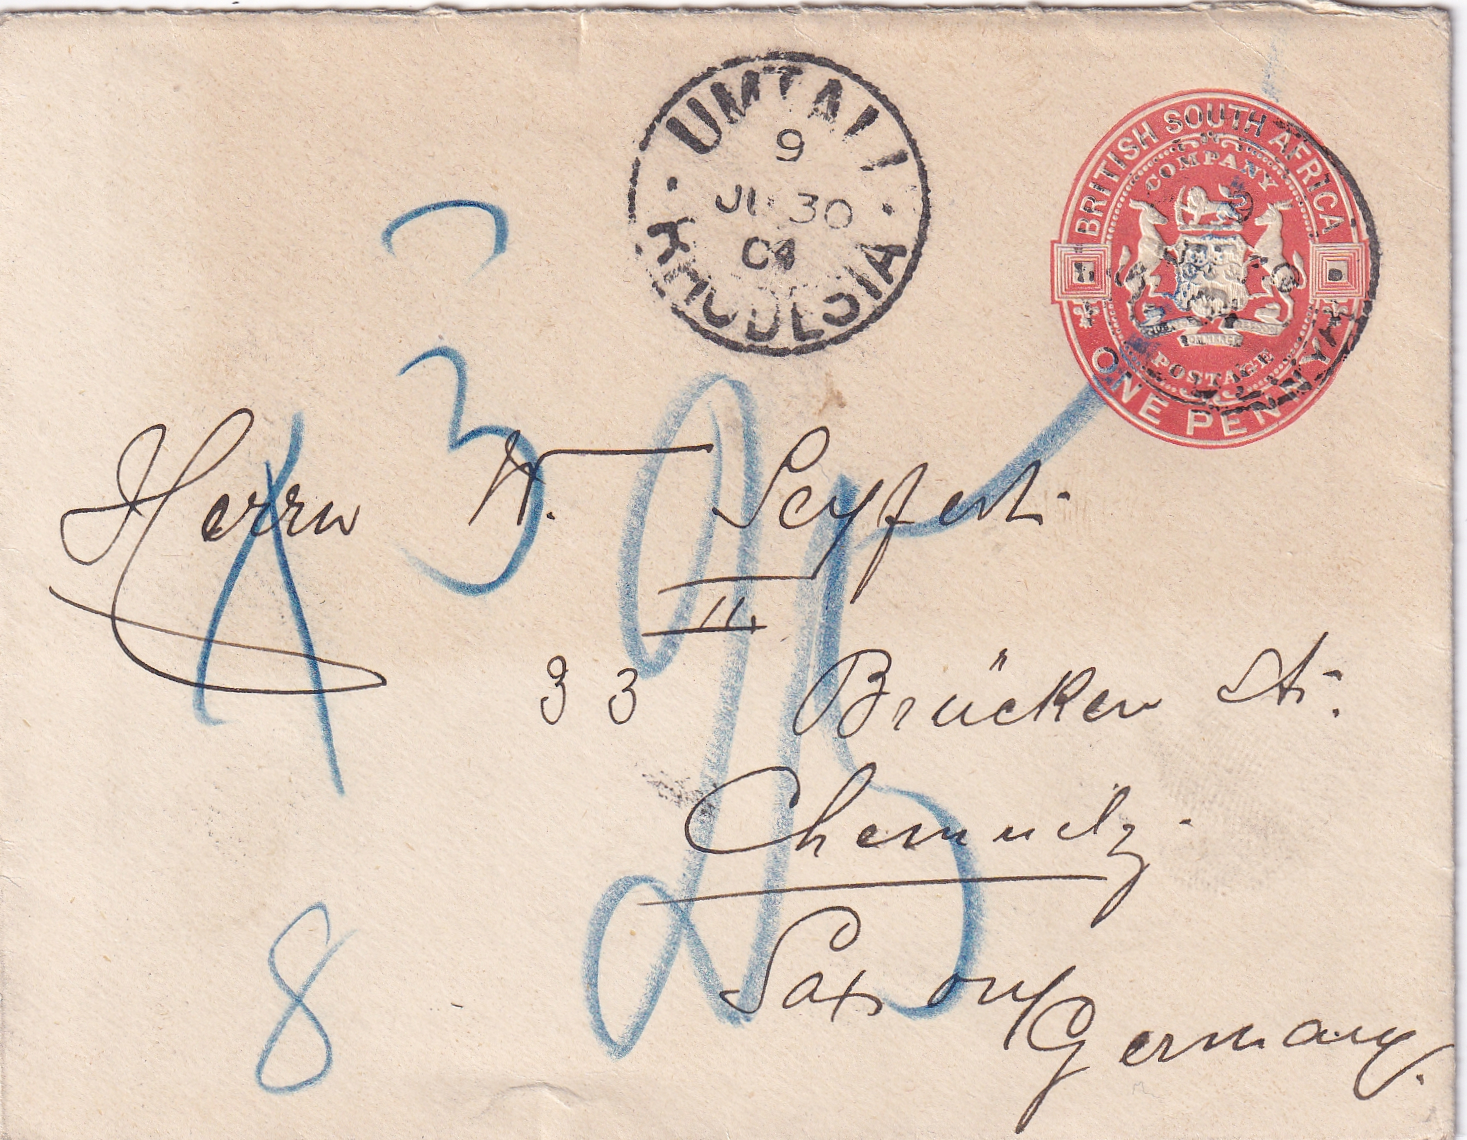 UMTALI
9
JU 30
04
RHODESIA
BRITISH SOUTH AFRICA
COMPANY
POSTAGE
ONE PENNY
3
25
8
Herrn W. Seyfert
II.
33 Brücken Str.
Chemnitz.
Saxony
Germany.